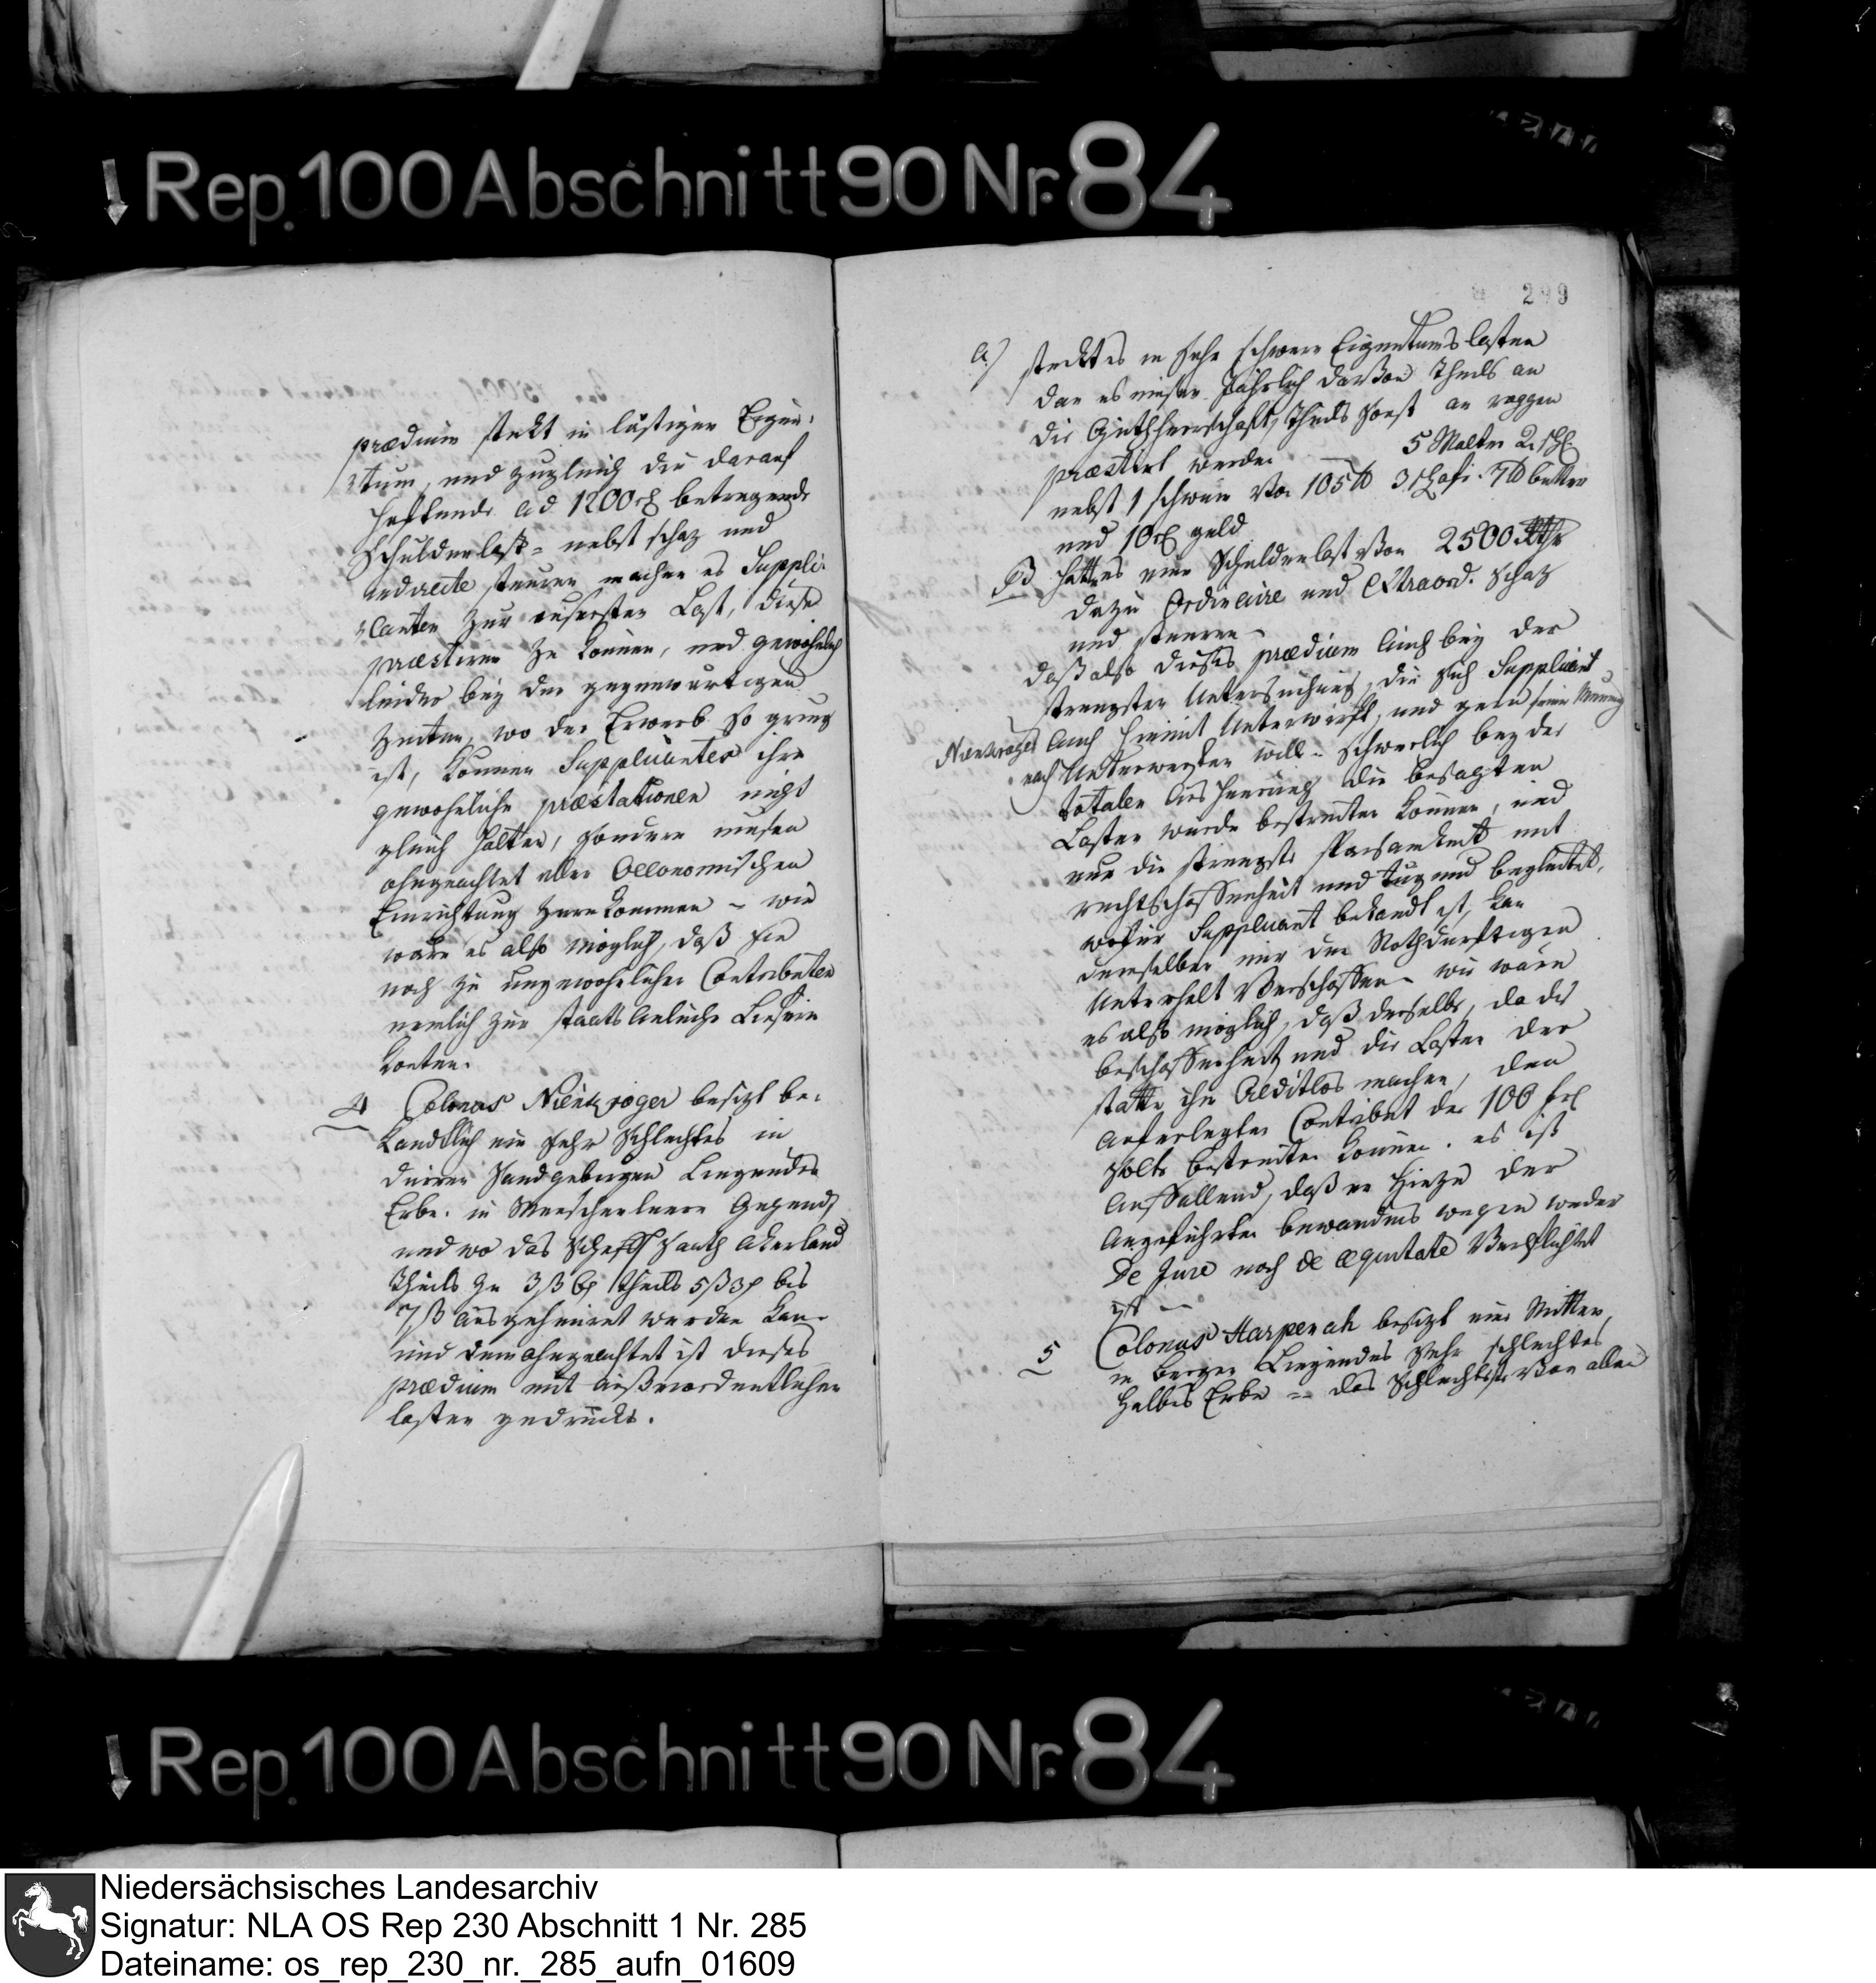 ↓ Rep. 100 Abschnitt 90 Nr. 84
prædium stekt in lästigen Eigen,
:tum, und zugleich die darauf
haftende ad 1200 betragende
Schulden last = nebst schaz und
indirecte steuren machen es Suppli:
:canten zur eusersten Last, diese
præstiren zu können, und gewöhnlich
leider bey den gegenwartigen
Zeiten, wo der Erwerb so gring
ist, können Supplicanten ihre
gewohnliche præstationen nicht
gleich halten, sondern müsen
ohngeachtet aller Oeconomischen
Einrichtung zurukommen – wie
wäre es also möglich, daß sie
noch zu ungewohnlicher Contributen
nemlich zur staats Anleihe
konten.
4 Colonus Nientzroger besizt be:
kandtlich ein sehr schlechtes in
dürren Sandgebergen Liegendes
Erbe. in Menscherleere Gegend,
und wo das Scheffl saath Akerland
theils zu 3 ß 6 theils 5 ß 3 bis
7 ß ausgeheuret werden kan.
und dem ohngeachtet ist dieses
prædium mit außerordentlichen
lasten gedruckt.
299
a) stekt es in sehr schweren Eigentums lasten
den es müsen Jahrlich davon theils an
die Guthsherrschaft, theils sonst an roggen
præstirt werden — 5 Malter 2
nebst 1 schwein von 105 ℔ 3 7 ℔ butter
und 10 geld
B hatt es eine Schuldenlast von 2500 Rthr
dazu Ordinaire und Extraord. Schaz
und steuren –
daß also dieses prædium auch bey der
strengsten Untersuchung, die sich Supplicant
Nientzroger auch hiemit Unterwirft, und gern seine
nach Unterwerfen will – schwerlich bey der
totalen Ausheurung die besagten
Lasten wurde bestreiten können, und
nur die strengste sparsamkeit mit
rechtschaffenheit und tugend begleitet,
wofür Supplicant bekandt ist, kan
demselben nur den Nothdurftigen
Unterhalt Verschaffen – wie wäre
es also möglich, daß derselbe, da die
beschaffenheit und die Lasten der
statte ihn Creditlos machen, den
auferlegten Contribut der 100
solte bestreiten können. es ist
auffallend, daß er hiezu der
Angeführten bewandnis wegen weder
de Jure noch de æquitate Verpflichtet
ist —
5 Colonus Harpenah besizt ein Mitten,
in bergen Liegendes sehr schlechtes
halbes Erbe – das schlechtste von allen
↓ Rep. 100 Abschnitt 90 Nr. 84
Niedersächsisches Landesarchiv
Signatur: NLA OS Rep 230 Abschnitt 1 Nr. 285
Dateiname: os_rep_230_nr._285_aufn_01609